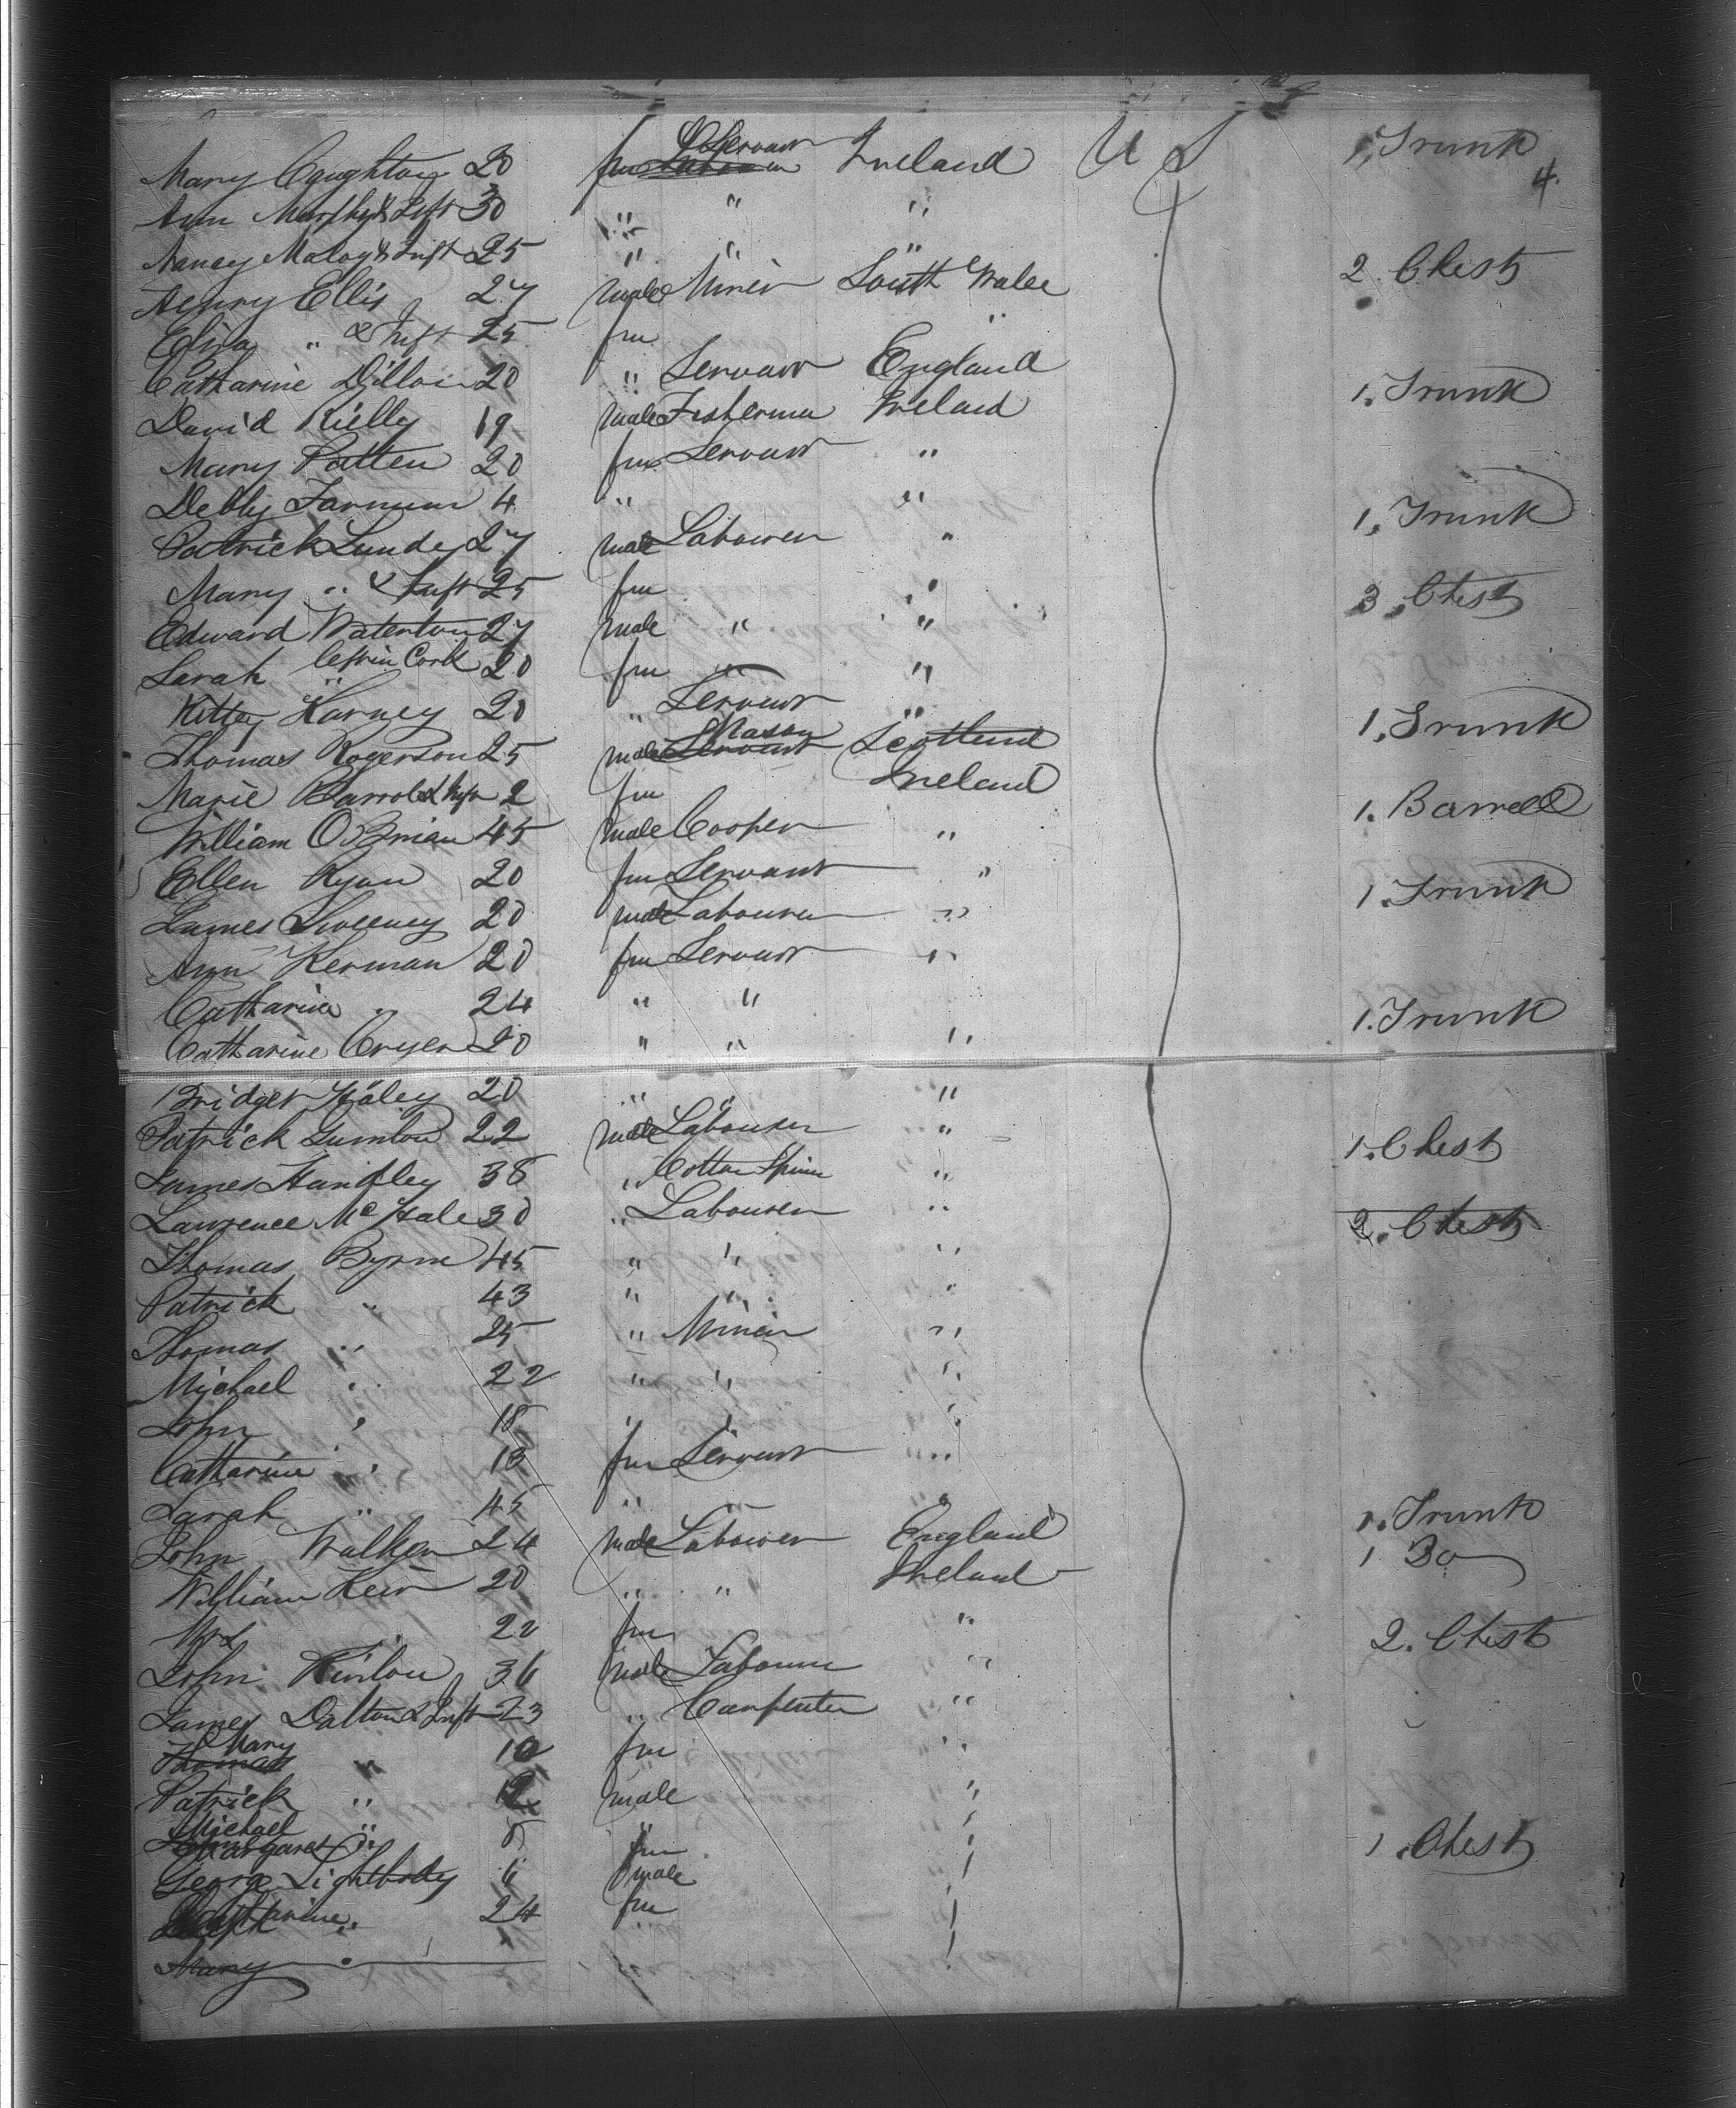 Mary Coughton 20 fm Servant Ireland U S 1. Trunk
4.
Ann Murphy & Inft 30 " " "
Nancy Maloy & Inft 25 " " " 2 Chest
Henry Ellis 27 male Miner South Wales
Eliza " & Inft 25 fm "
Catharine Dillon 20 " Servant England 1. Trunk
David Rielly 19 male Fisherman Ireland
Mary Patten 20 fm Servant "
Debby Farnum 4 " " 1. Trunk
Patrick Lundy 27 male Labourer "
Mary " & Inft 25 fm " 3. Chest
Edward Waterton 27 male " "
Sarah " left in Cork 20 fm " "
Kitty Harney 20 " Servant " 1. Trunk
Thomas Rogerson 25 male Servant Mason Scotland
Marie Barrol & Inft 2 fm Ireland 1. Barrell
William O Brian 45 male Cooper "
Ellen Ryan 20 fm Servant " 1. Trunk
James Sweeney 20 male Labourer "
Ann Kerman 20 fm Servant "
Catharine " 24 " " 1. Trunk
Catharine Cryer 20 " " "
Bridget Haley 20 " " "
Patrick Gunlon 22 male Labourer " 1. Chest
James Handley 38 " Cotton Spinr "
Lawrence McHale 30 " Labourer " 2. Chest
Thomas Byrne 45 " " "
Patrick " 43 " " "
Thomas " 25 " Miner "
Michael " 22 " " "
John " 18 " " "
Catharine " 13 fm Servant "
Sarah " 45 " " 1. Trunk
John Walker 24 male Labourer England 1 Do
William Keir 20 " " Ireland
Mrs 22 fm " 2. Chest
John Kinlon 36 male Labourer "
James Dalton & Inft 23 " Carpenter "
Thomas Mary " 10 fm "
Patrick " 12 male "
Michael " 8 "
Margaret " fm " 1. Chest
George Lightbody 6 male "
Catharine " 24 fm "
Mary "